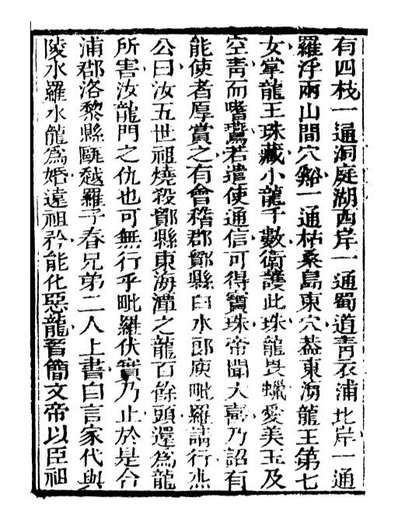 有四枝一通洞庭湖西岸一通蜀道青衣浦北岸一通
羅浮兩山間穴谿一通枯桑島東穴葢東海龍王第七
女掌龍王珠藏小龍千數衛護此珠龍畏蠟愛美玉及
空青而嗜鷰若遣使通信可得寶珠帝聞大喜乃詔有
能使者厚賞之有會稽郡鄮縣白水郎庾毗羅請行杰
公曰汝五世祖燒殺鄮縣東海潭之龍百餘頭還爲龍
所害汝龍門之仇也可無行乎毗羅伏實乃止於是合
浦郡洛黎縣甌越羅子春兄弟二人上書自言家代與
陵水羅水龍爲婚遠祖矜能化惡龍晉簡文帝以臣祖